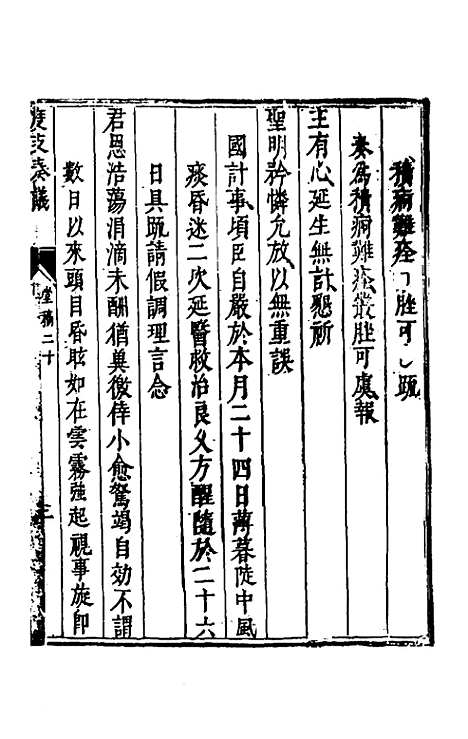 積痾難痊叢脞可虞疏
奏爲積痾難痊叢脞可虞報
主有心延生無計懇祈
聖明矜憐允放以無重誤
國計事頃臣自嚴於本月二十四日薄暮陡中風
痰昏迷二次延醫救治良久方醒隨於二十六
日具疏請假調理言念
君恩浩蕩涓滴未酬猶兾徼倖小愈駑竭自効不謂
數日以來頭目昏眩如在雲霧強起視事旋卽
度支奏議
堂稿二十